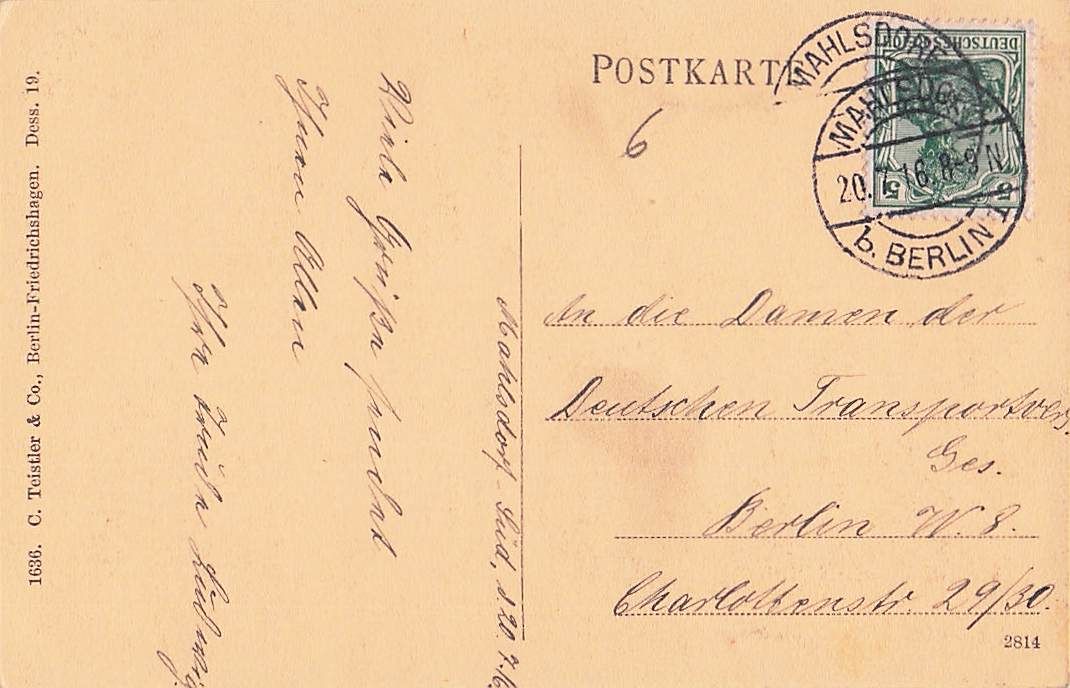 POSTKARTE
6
MAHLSDORF
MAHLSDORF
20.7.16.8-9N
b. BERLIN
DEUTSCHES REICH
5
5
An die Damen der
Deutschen Transportvers.
Ges.
Berlin W. 8.
Charlottenstr. 29/30.
2814
Mahlsdorf-Süd, d. 20.7.16.
Viele Grüße sendet
Ihnen Allen
Ihre
1636. C. Teistler & Co., Berlin-Friedrichshagen. Dess. 19.